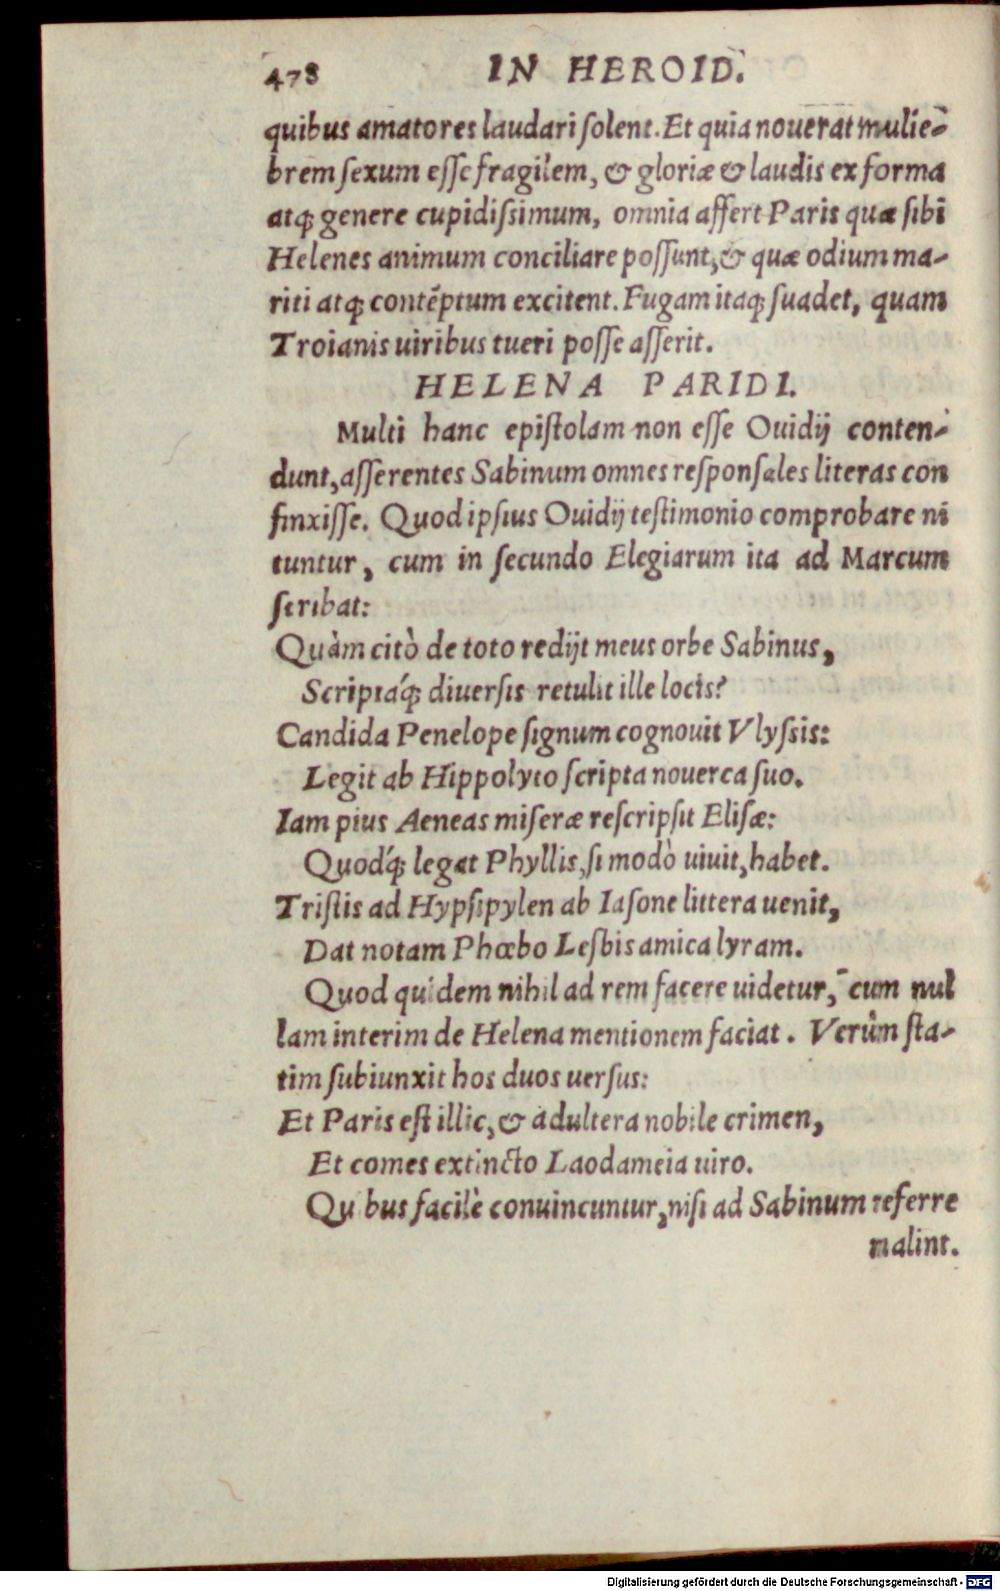 478 IN HEROID.
quibus amatores laudari ſolent. Et quia nouerat mulie-
brem ſexum eſſe fragilem, & gloriæ & laudis ex forma
atq; genere cupidiſsimum, omnia affert Paris quæ ſibi
Helenes animum conciliare poſſunt, & quæ odium ma-
riti atq; contēptum excitent. Fugam itaq; ſuadet, quam
Troianis uiribus tueri poſſe aſſerit.
HELENA PARIDI.
Multi hanc epiſtolam non eſſe Ouidij conten-
dunt, aſſerentes Sabinum omnes reſponſales literas con
finxiſſe. Quod ipſius Ouidij teſtimonio comprobare ni
tuntur, cum in ſecundo Elegiarum ita ad Marcum
ſcribat:
Quàm citò de toto redijt meus orbe Sabinus,
Scriptáq; diuerſis retulit ille locis?
Candida Penelope ſignum cognouit Vlyſsis:
Legit ab Hippolyto ſcripta nouerca ſuo.
Iam pius Aeneas miſeræ reſcripſit Eliſæ:
Quodq́; legat Phyllis, ſi modò uiuit, habet.
Triſtis ad Hypſipylen ab Iaſone littera uenit,
Dat notam Phœbo Lesbis amica lyram.
Quod quidem nihil ad rem facere uidetur, cum nul
lam interim de Helena mentionem faciat. Verùm ſta-
tim ſubiunxit hos duos uerſus:
Et Paris eſt illic, & adultera nobile crimen,
Et comes extincto Laodameia uiro.
Quibus facilè conuincuntur, niſi ad Sabinum referre
malint.
Digitalisierung gefördert durch die Deutsche Forschungsgemeinschaft - DFG